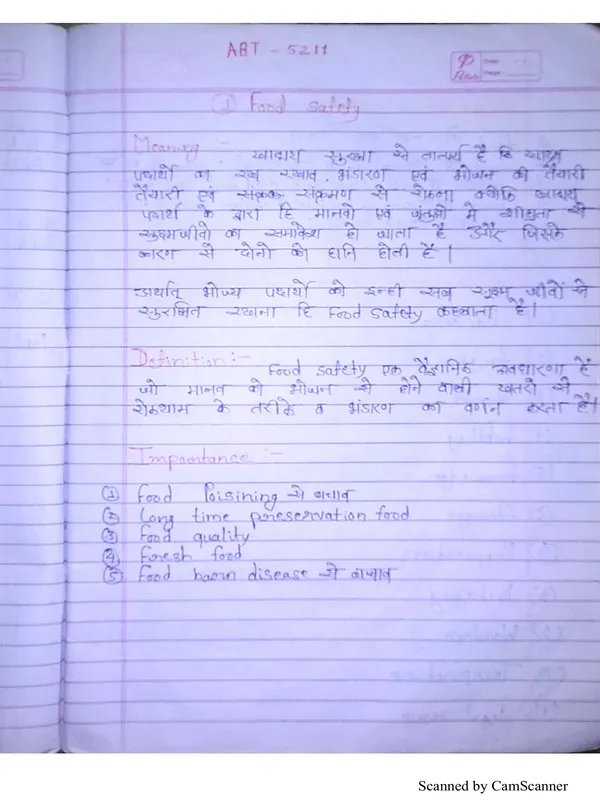 ABT - 5211
① Food safety
Meaning :- खाद्य सुरक्षा से तात्पर्य है कि खाद्य
पदार्थो का रख रखाव, भंडारण एवं भोजन की तैयारी
तैयारी एवं संक्रमण से रोकना क्योकि खाद्य
पदार्थ के द्वारा हि मानवो एवं जंतुओ मे शीघ्रता से
सूक्ष्मजीवो का समावेश हो जाता है और जिसके
कारण से दोनो को हानि होती है ।
अर्थात् भोज्य पदार्थो को इन्ही सब सूक्ष्म जीवों से
सुरक्षित रखना हि Food Safety कहलाता है।
Definition :-
Food safety एक वैज्ञानिक अवधारणा है
जो मानव को भोजन से होने वाली खतरो से
रोकथाम के तरीके व भंडारण का वर्णन करता है।
Importance :-
① Food Poisining से बचाव
② Long time preservation food
③ Food quality
④ Fresh food
⑤ Food born disease से बचाव
Scanned by CamScanner